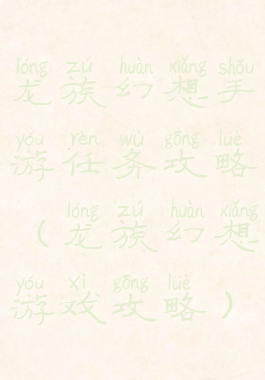 lóng zú huàn xiǎng shǒu
龙族幻想手
yóu rèn wù gōng lüè
游任务攻略
lóng zú huàn xiǎng
(龙族幻想
yóu xì gōng lüè
游戏攻略)